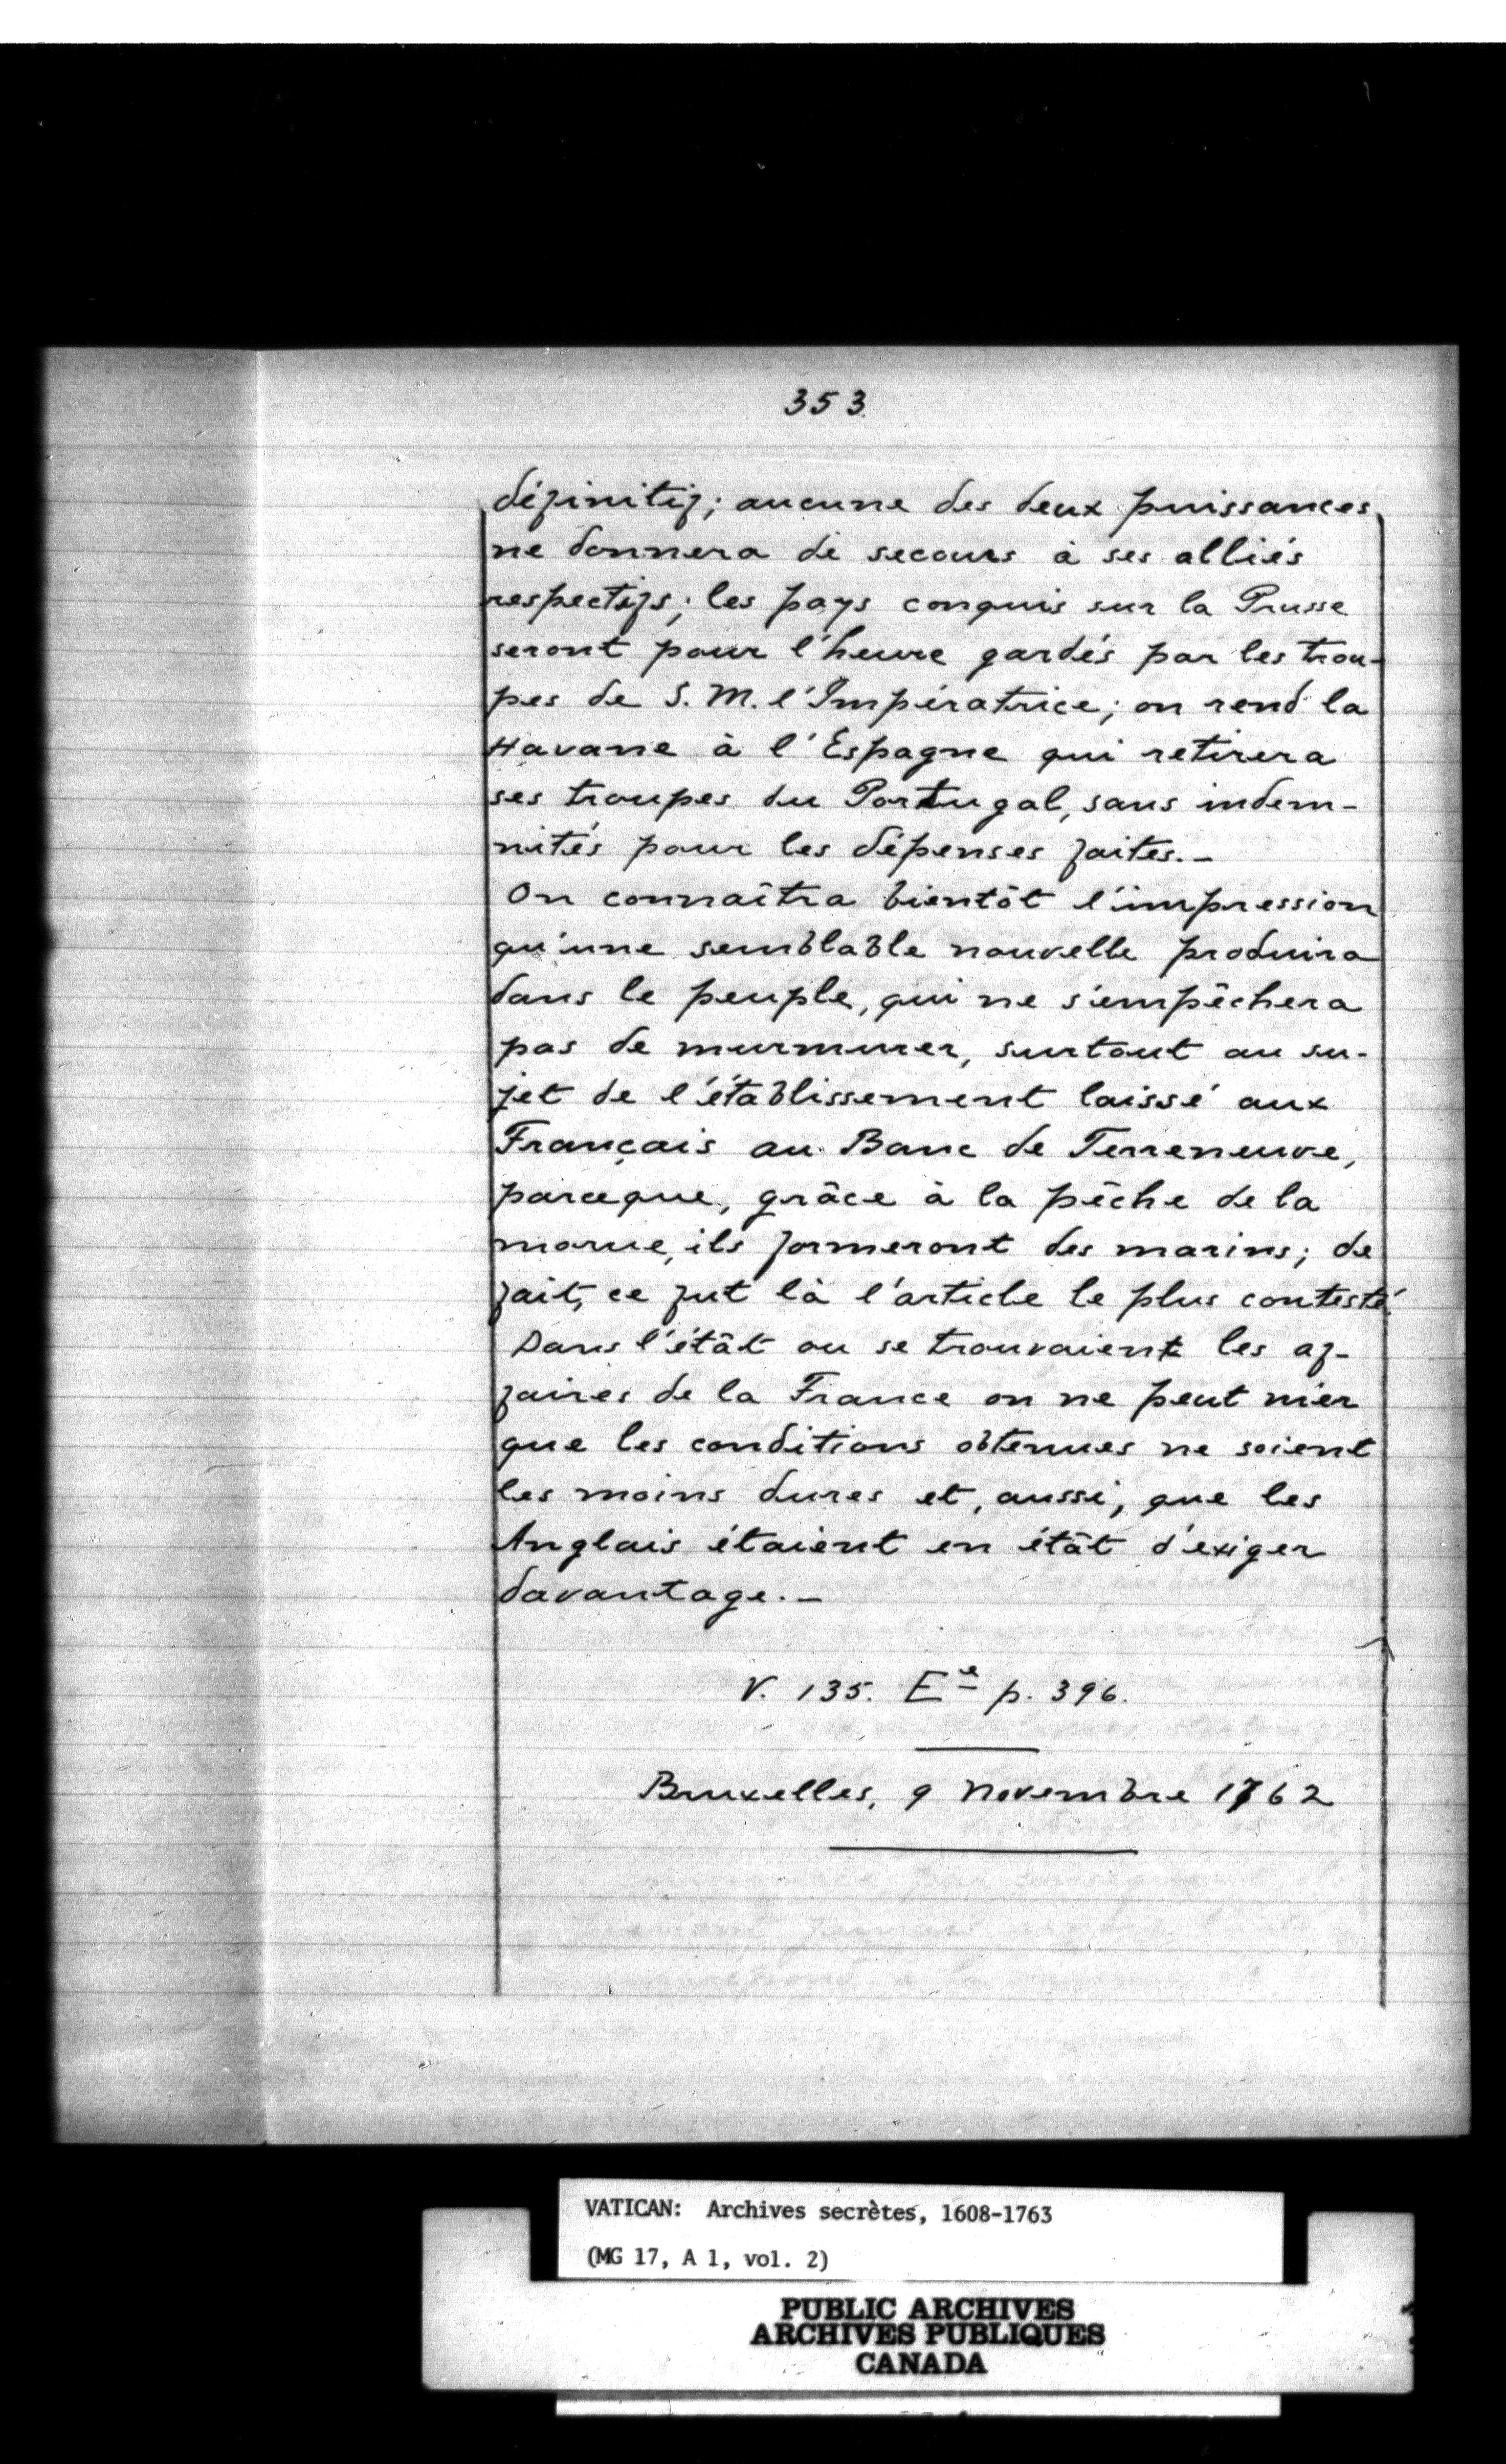 353
définitif; aucune des deux puissances
ne donnera de secours à ses alliés
respectifs; les pays conquis sur la Prusse
seront pour l'heure gardés par les trou-
pes de S. M. l'Impératrice; on rend la
Havane à l'Espagne qui retirera
ses troupes du Portugal, sans indem-
nités pour les dépenses faites.-
On connaîtra bientôt l'impression
qu'une semblable nouvelle produira
dans le peuple, qui ne s'empêchera
pas de murmurer, surtout au su-
jet de l'établissement laissé aux
Français au Banc de Terreneuve,
parceque, grâce à la pêche de la
morue, ils formeront des marins; de
fait, ce fut là l'article le plus contesté.
Dans l'étât ou se trouvaient les af-
faires de la France on ne peut nier
que les conditions obtenues ne soient
les moins dures et, aussi, que les
Anglais étaient en étât d'exiger
davantage.-
V. 135. Eᵉ p. 396.
Bruxelles, 9 Novembre 1762
VATICAN: Archives secrètes, 1608-1763
(MG 17, A 1, vol. 2)
PUBLIC ARCHIVES
ARCHIVES PUBLIQUES
CANADA